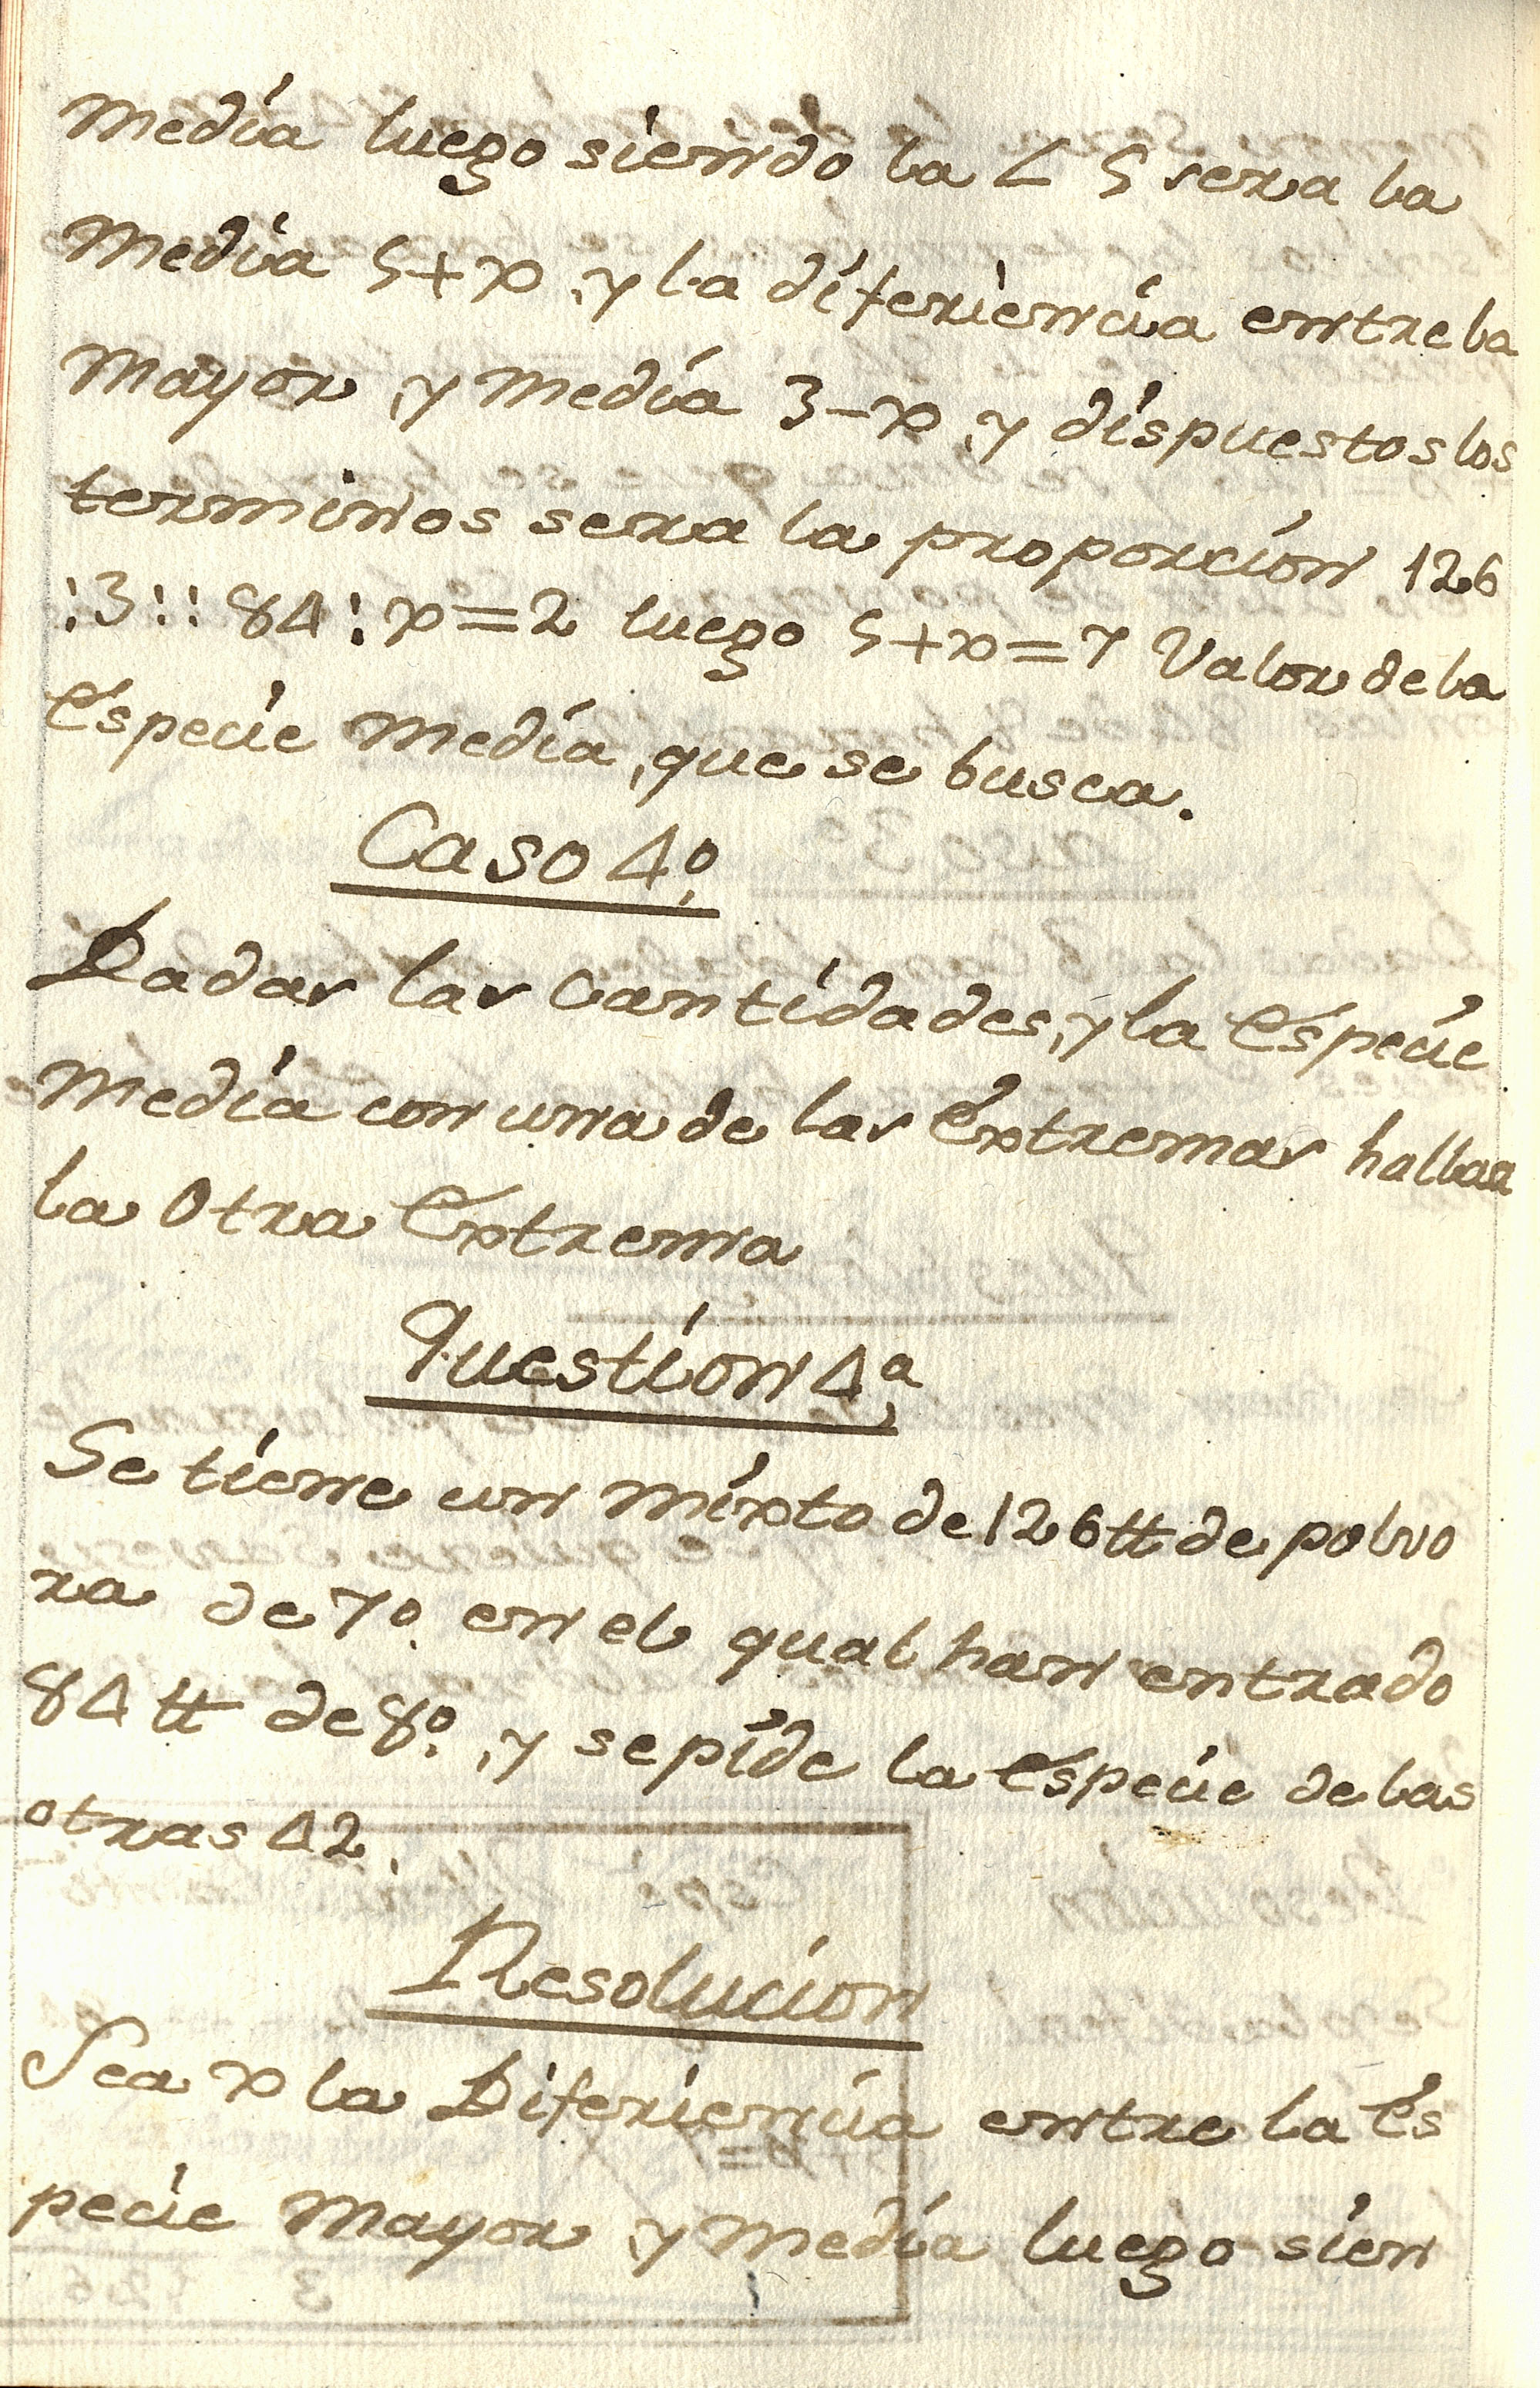 media luego siendo la < 5 sera la
media 5+x, y la diferiencia entre la
mayor, y media 3-x, y dispuestos los
terminos sera la proporcion 126
:3::84:x=2 luego 5+x=7 Valor de la
Especie media, que se busca.
Caso 4º
Dadas las Cantidades, y la Especie
media con una de las Extremas hallar
la Otra Extrema
Question 4ª
Se tiene un mixto de 126 tt de polvo
ra de 7º en el qual han entrado
84 tt de 8º, y se pide la Especie de las
otras 42.
Resolucion
Sea x la Diferiencia entre la Es
pecie Mayor, y media luego sien